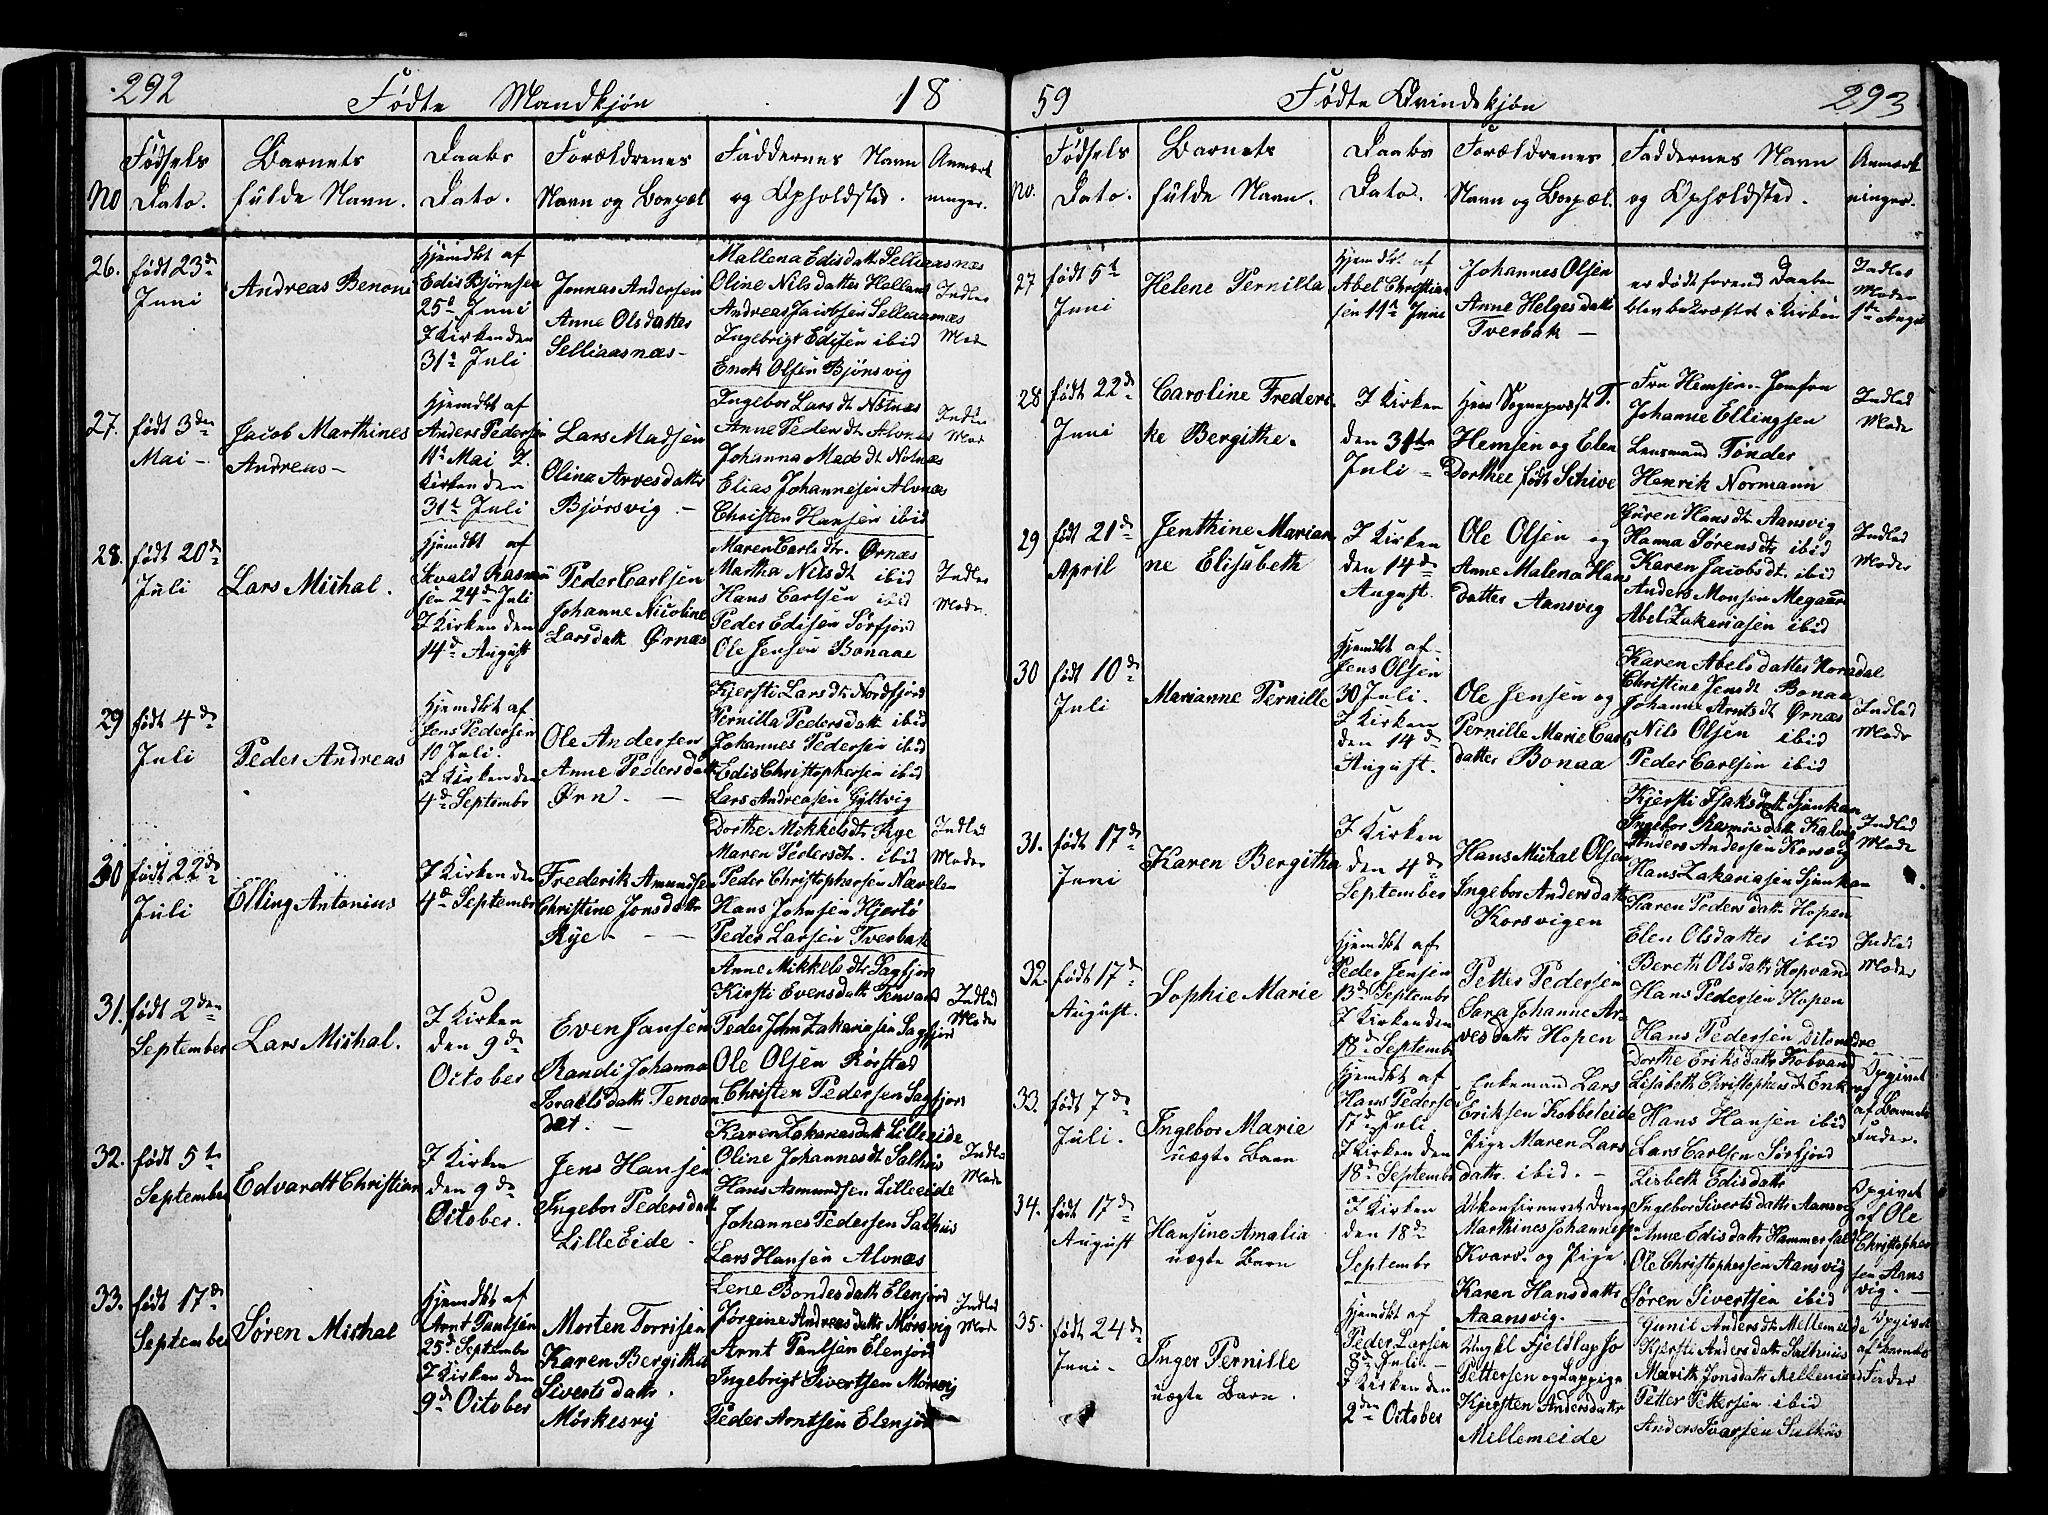 292
Fødte Mandkjøn
18
No
Fødsels Dato.
Barnets fulde Navn.
Daabs Dato.
Forældrenes Navn og Bopæl
Faddernes Navn og Opholdsted.
Anmærkninger.
26.
født 23de
Juni
Andreas Benoni
Hjemdbt af
Edis Bjørnsen
25d Juni
I Kirken den
31te Juli
Jonnas Andersen
Anne Olsdatter
Selliaasnæs
Mallena Edisdatt Selliaasnæs
Oline Nilsdatter
Andreas Jacobsen Selliaasnæs
Ingebrigt Edisen ibid
Enok Olsen Bjønsvig
Indled
Mod
27.
født 3den
Mai
Jacob Marthines
Andreas
Hjemdbt af
Anders Pedersen
11te Mai I
Kirken den
31te Juli
Lars Madsen
Olina Arvesdatter
Bjørsvig
Ingebor Larsdt Nøtnæs
Anne Pedersdt Alvnæs
Johanna Madsdt Nøtnæs
Elias Johannesen Alvnæs
Christen Hansen ibid
28.
født 20de
Juli
Lars Michal.
Hjemdbt af
sen 24de Juli
I Kirken den
14de August
Peder Carlsen
Johanne Nicoline
Larsdatt Ørnæs
Maren Carlsdtr. Ørnæs
Martha Nilsdt ibid
Hans Carlsen ibid
Peder Edisen Sørfjord
Ole Jensen Bonaae
Indled
Mode
29
født 4de
Juli
Peder Andreas
Hjemdbt af
Jens Pedersen
10 Juli.
I Kirken den
4de Septembr
Ole Andersen
Anne Pedersdatt
Ørn.
Kjersti Larsdt Nordfjord
Pernilla Pedersdatt ibid
Johannes Pedersen ibid
Edis Christophersen ibid
Lars Andreasen Gyltvig
30
født 22de
Juli
Elling Antonius
I Kirken den
4de September
Frederik Amundsen
Christine Jonsdattr
Rye
Dorthe Mikkelsdtr Rye
Maren Pedersdt. ibid
Peder Christophersen Nævelsn
Hans Johnsen Hjertø
Peder Larsen Tverbak
Indled
Moder
31.
født 2den
September
Lars Michal.
I Kirken
den 9de
October
Even Jansen
Randi Johanna
Israelsdatt Tenvan
det.
Anne Mikkelsdtr Sagfjor
Kirsti Evensdatt Tenvand
Peder John Zakariasen Sagfjord
Ole Olsen Rørstad
Christen Pedersen Sagfjord
Indled
Moder
32.
født 5te
September
Edvardt Christian
I Kirken
den 9de
October.
Jens Hansen
Ingebor Pedersdatt
Lille Eide
Karen Zakariasdatt Lilleeide
Oline Johannesdt Salhus
Hans Asmundsen Lilleeide
Johannes Pedersen Salhus
Lars Hansen Alvnæs
33.
født 17de
September
Søren Michal
Hjemdbt af
Arnt Paulsen
25de Septembr
I Kirken den
9de October
Morten Torrisen
Karen Bergitha
Sivertsdattr.
Mørkesvg
Lene Bondesdatt Elenfjord
Jørgine Andreasdatt Mørsvig
Arnt Paulsen Elenfjord
Ingebrigt Sivertsen Mørsvig
Peder Arntsen Elenfjord
Indled
Mod
59
Fødte Qvindekjøn
293
No.
Fødsels Dato.
Barnets fulde Navn.
Daabs Dato.
Forældrenes Navn og Bopæl.
Faddernes Navn og Opholdsted.
Anmærkninger.
27
født 5te
Juni
Helene Pernilla
Hjemdbt af
Abel Christian
sen 11te Juni
Johannes Olsen
Anne Helgesdatt
Tverbak
er død forend Daaben
blev bekræftet i Kirken
Indled
Moder
1te August
28
født 22de
Juni
Caroline Frederi
ke Bergithe.
I Kirken
den 31te
Juli
Herr Sogneprest T.
Hemsen og Elen
Dorthee født Schive
Fru Hemsen Jomfru
Johanne Ellingsen
Lensmand Tønder
Henrik Normann
Indled
Mode
29
født 21de
April
Jenthine Marian
ne Elisabeth
I Kirken
den 14de
August.
Ole Olsen og
Anne Malena Hans
datter Aansvig
Guren Hansdtr Aansvig
Hanna Sørensdtr ibid
Karen Jacobsdt. ibid
Anders Monsen Megaar
Abel Zakariasen ibid
Indled
Moder
30
født 10de
Juli
Marianne Pernille
Hjemdbt af
Jens Olsen
30 Juli.
I Kirken
den 14de
August.
Ole Jensen og
Pernille Marie Carls
datter Bonaa
Karen Abelsdatter Horndal
Christine Jensdt Bonaa
Johanne Arntsdt Ørnæs
Nils Olsen ibid
Peder Carlsen ibid
Indled
Modr
31.
født 17de
Juni
Karen Bergitha
I Kirken
den 4de
September
Hans Michal Olsen
Ingebor Andersdatt
Korsvigen
Kjersti Isaksdatt Sjunkan
Ingebor Rasmusdatt Kalvig
Anders Andersen Korsvig
Hans Zakariasen Sjunkan
Indled
Mode
32.
født 17de
August.
Sophie Marie
Hjemdbt af
Peder Jensen
13de Septembr
I Kirken den
18de Septembr
Petter Pedersen
Sara Johanne Ar
vesdattr Hopen
Karen Pedersdattr Hopen
Elen Olsdatter ibid
Bereth Olsdattr Hopvand
Hans Pedersen Hopen
Hans Pedersen
Indled
Moder
33.
født 7de
Juli.
Ingebor Marie
uægte Barn
Hjemdbt af
Hans Pedersen
17de Juli
I Kirken den
18de Septembr
Enkemand Lars
Eriksen Kobbeleide
Pige Maren Lars
dattr. ibid.
Dorthe Eriksdattr Kobvand
Lisabeth Christophersdt
Hans Hansen ibid
Lars Carlsen Sørfjord
Opgivet
af Barnets
Fader.
34.
født 17de
August
Hansine Amalia
uægte Barn
I Kirken
den 18de
Septembr
Ukonfirmeret Dreng
Marthines Johannesen
Kvarv. og Pige
Karen Hansdattr
Aaansvig.
Lisbeth Edisdattr
Ingebor Sivertsdattr Aansvig
Anne Edisdattr Hammerfald
Ole Christophersen Aansvig
Søren Sivertsen ibid
Opgivet
af Ole
Christopher
sen Aans
vig.
35.
født 24de
Juni
Inger Pernille
uægte Barn.
Hjemdbt af
Peder Larsen
8de Juli.
I Kirken den
2den October
Ungkl Fjeldlap Jo
Pettersen og Lappige
Kjersten Andersdattr
Mellemeide
Gunil Andersdt Mellemeide
Kjersti Andersdattr Salhuus
Marith Jonsdattr Mellemeid
Petter Pettersen ibid
Anders Ivarsen Salhus
Opgivet
af Barnets
Fader